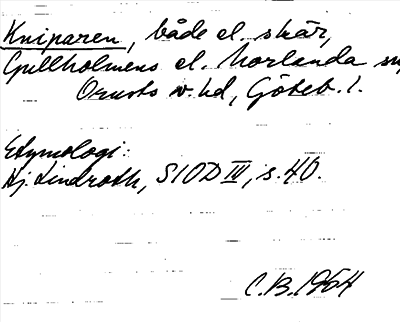 Kniparen, både el. skär,
Gullholmens el. Morlanda sn,
Orusts v. hd, Göteb. l.
Etymologi:
Hj. Lindroth, SIOD III, s. 40.
C.B. 1964